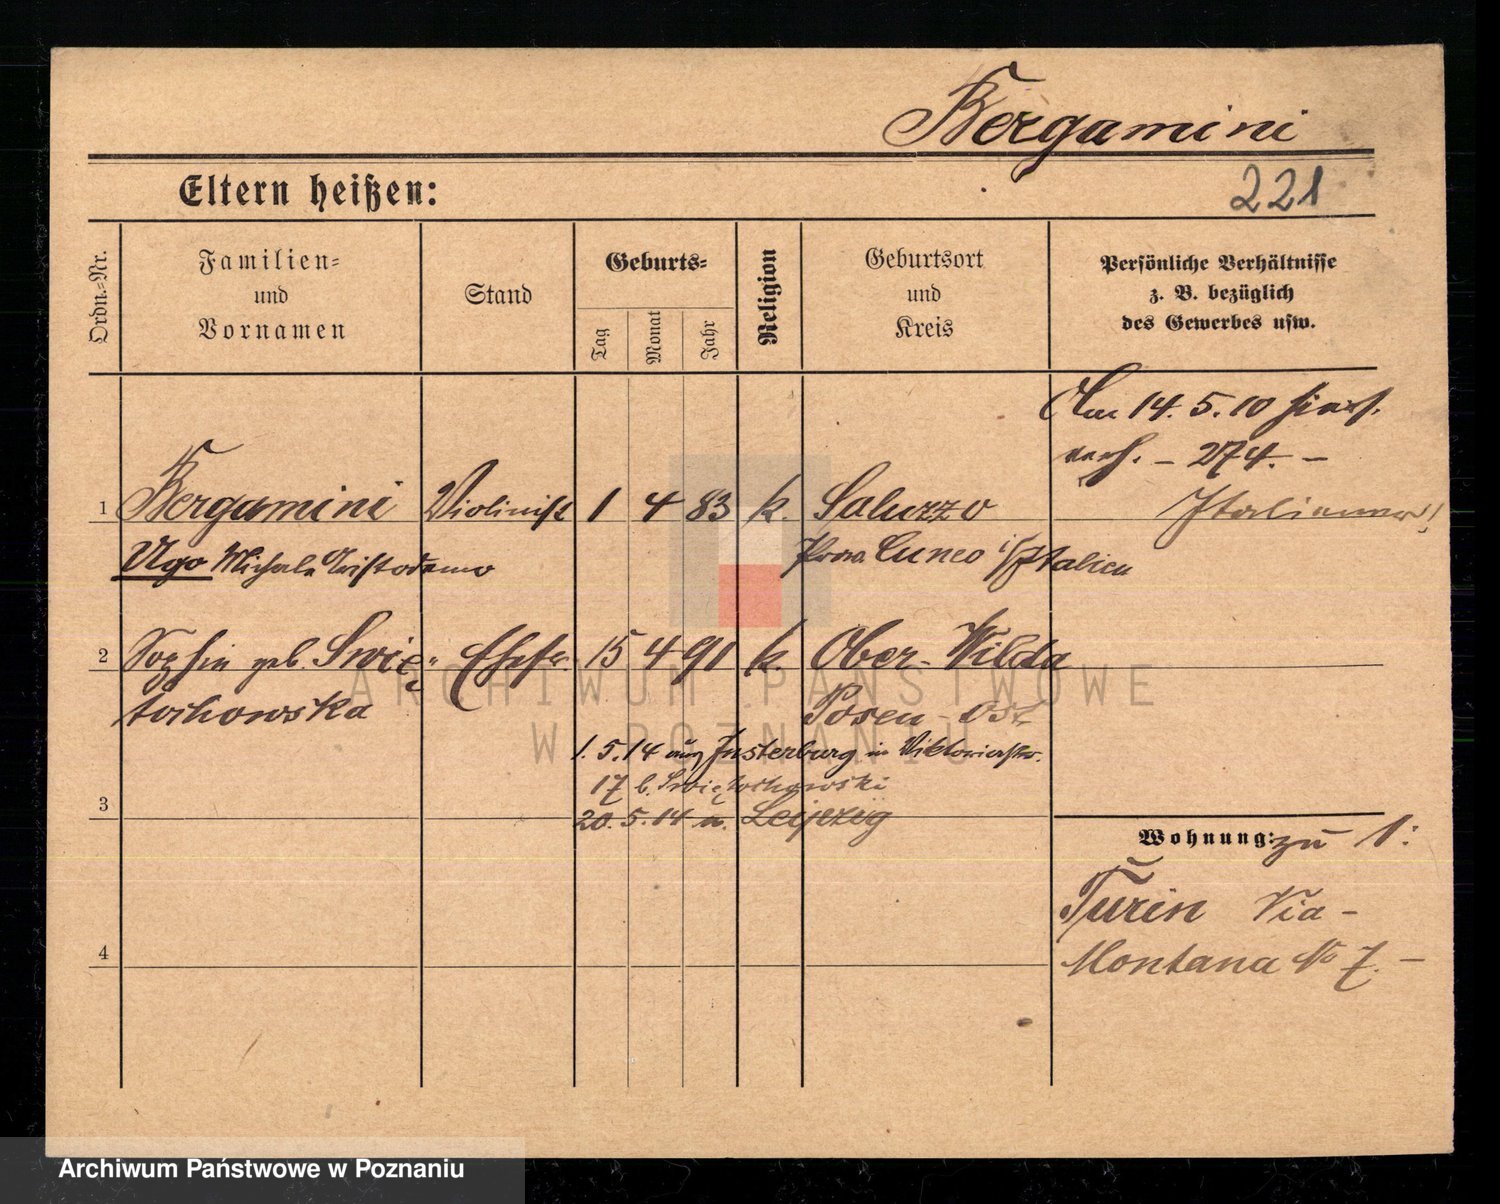 Bergamini
Eltern heißen:
221
Ordn.-Nr.
Familien-
und
Vornamen
Stand
Geburts-
Tag
Monat
Jahr
Religion
Geburtsort
und
Kreis
Persönliche Verhältnisse
z. B. bezüglich
des Gewerbes usw.
Am 14. 5. 10 hiers.
verh. – 274. –
1 Bergamini Violinist 1 4 83 k. Saluzzo Italiener!
Ugo Michele Aristodemo Prov. Cuneo i/Italien
2 Sophie geb. Swię- Ehefr. 15 4 91 k. Ober-Wilda
tochowska Posen-Ost
1. 5. 14 aus Insterburg in Viktoriastr.
17 b. Świętochowski
3 20. 5. 14 n. Leipzig
Wohnung: zu 1:
Turin Via-
4 Montana No 7. –
ARCHIWUM PAŃSTWOWE
W POZNANIU
Archiwum Państwowe w Poznaniu